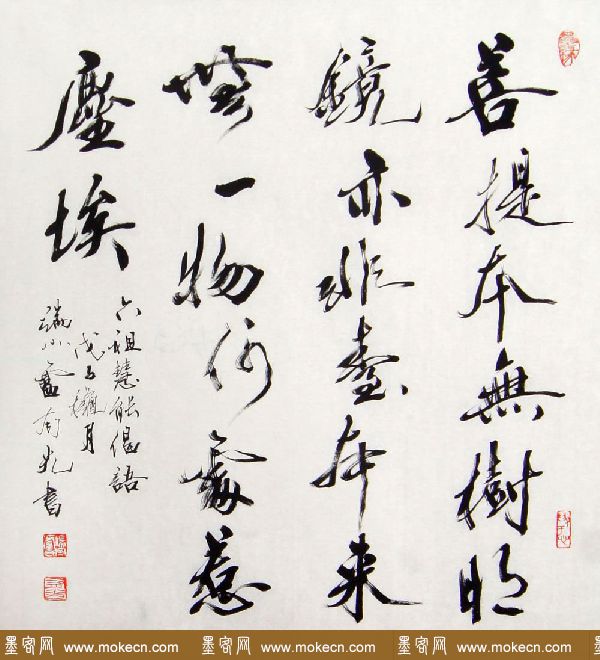 菩提本無樹明
鏡亦非臺本来
無一物何處惹
塵埃
六祖慧能偈語
戊子月
書
墨客网 www.mokecn.com 墨客网 www.mokecn.com 墨客网 www.mokecn.com